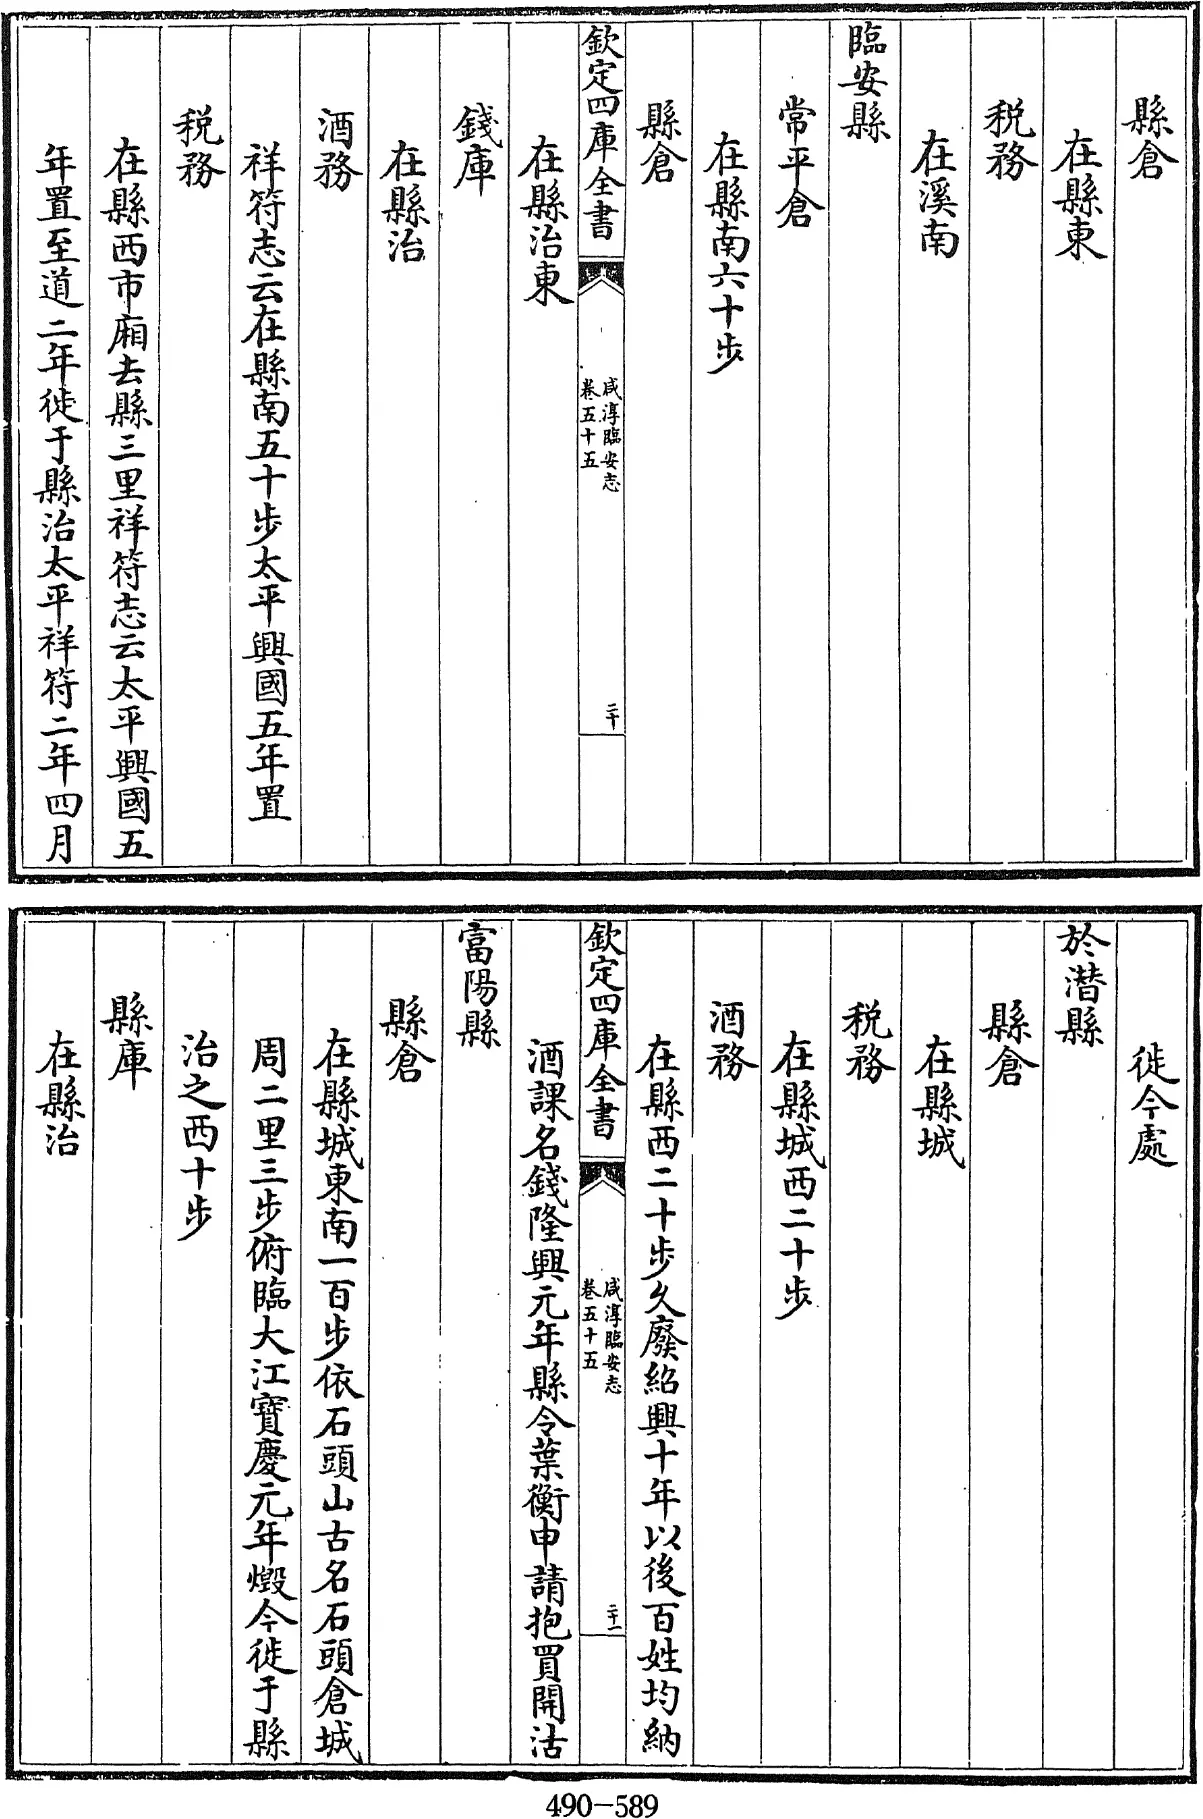 縣倉
在縣東
税務
在溪南
臨安縣
常平倉
在縣南六十步
縣倉
欽定四庫全書
咸淳臨安志
卷五十五
二十
在縣治東
錢庫
在縣治
酒務
祥符志云在縣南五十步太平興國五年置
税務
在縣西市廂去縣三里祥符志云太平興國五
年置至道二年徙于縣治太平祥符二年四月
徙今處
於潛縣
縣倉
在縣城
税務
在縣城西二十步
酒務
在縣西二十步久廢紹興十年以後百姓均納
欽定四庫全書
咸淳臨安志
卷五十五
二十一
酒課名錢隆興元年縣令葉衡申請抱買開沽
富陽縣
縣倉
在縣城東南一百步依石頭山古名石頭倉城
周二里三步俯臨大江寶慶元年燬今徙于縣
治之西十步
縣庫
在縣治
490-589